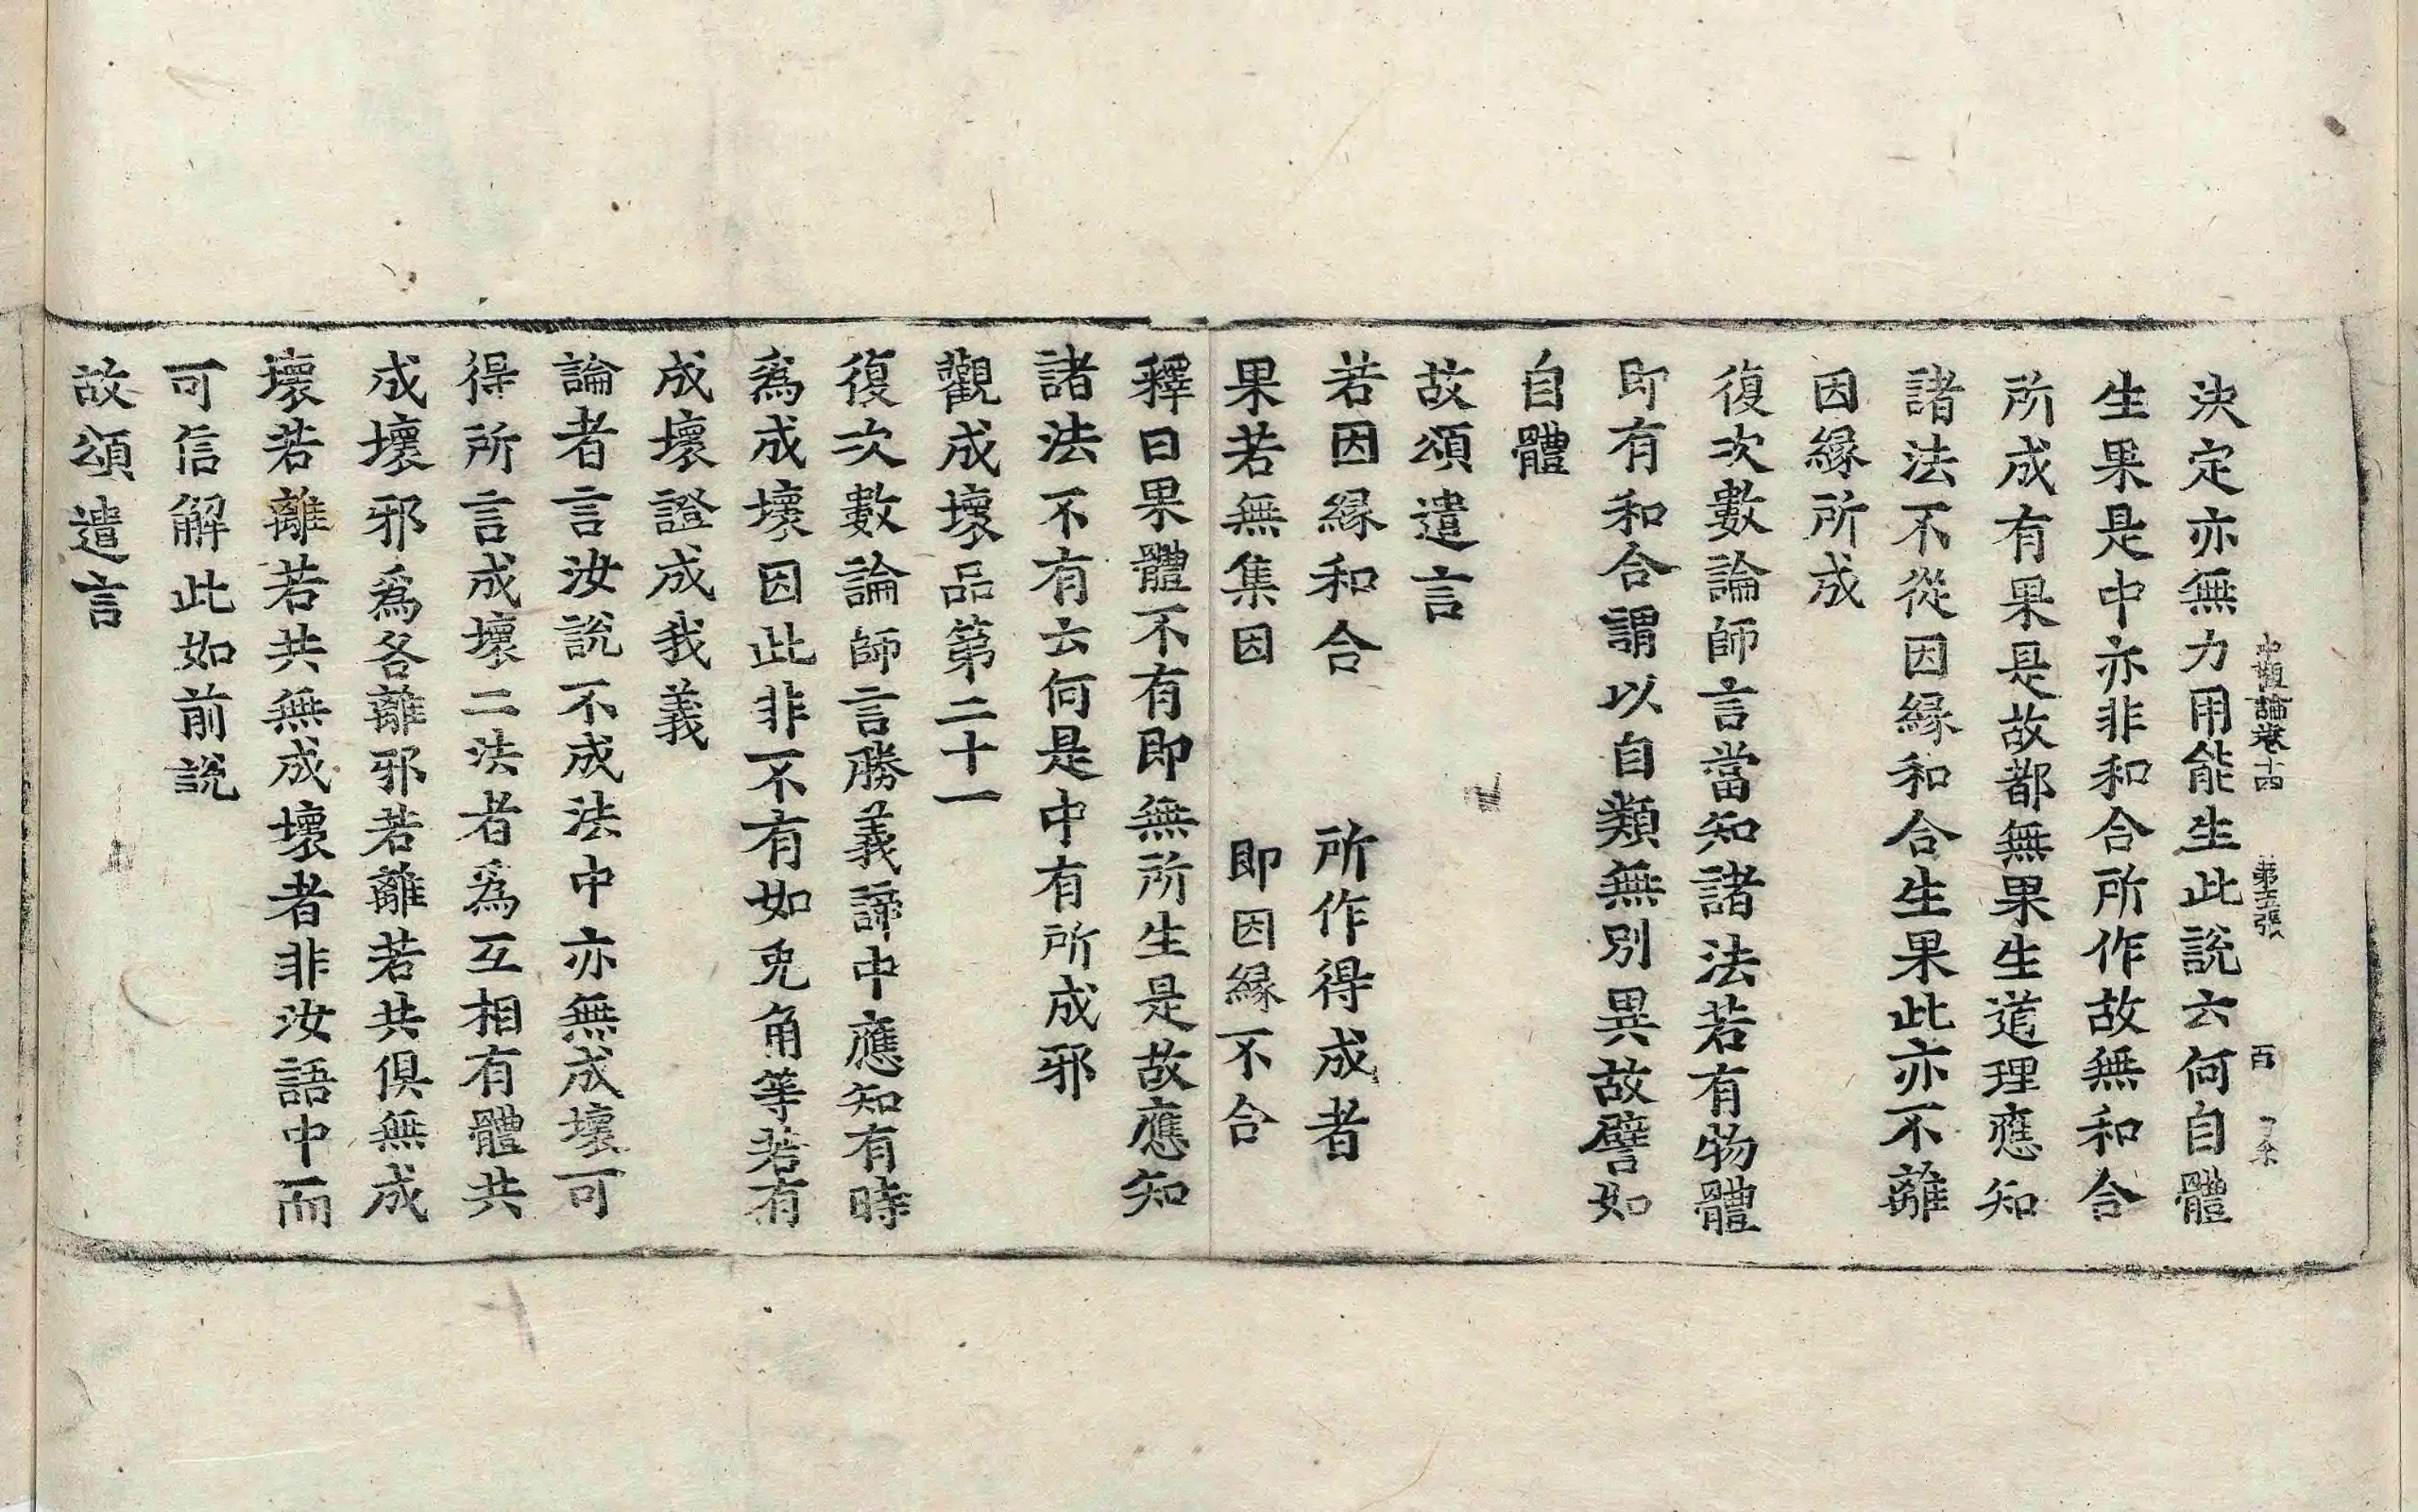 中觀論卷十四 第五張 百
決定亦無力用能生此說云何自體
生果是中亦非和合所作故無和合
所成有果是故都無果生道理應知
諸法不從因緣和合生果此亦不離
因緣所成
復次數論師言當知諸法若有物體
即有和合謂以自類無別異故譬如
自體
故頌遣言
若因緣和合 所作得成者
果若無集因 即因緣不合
釋曰果體不有即無所生是故應知
諸法不有云何是中有所成邪
觀成壞品第二十一
復次數論師言勝義諦中應知有時
爲成壞因此非不有如兎角等若有
成壞證成我義
論者言汝說不成法中亦無成壞可
得所言成壞二法者爲互相有體共
成壞邪爲各離邪若離若共俱無成
壞若離若共無成壞者非汝語中而
可信解此如前說
故頌遣言